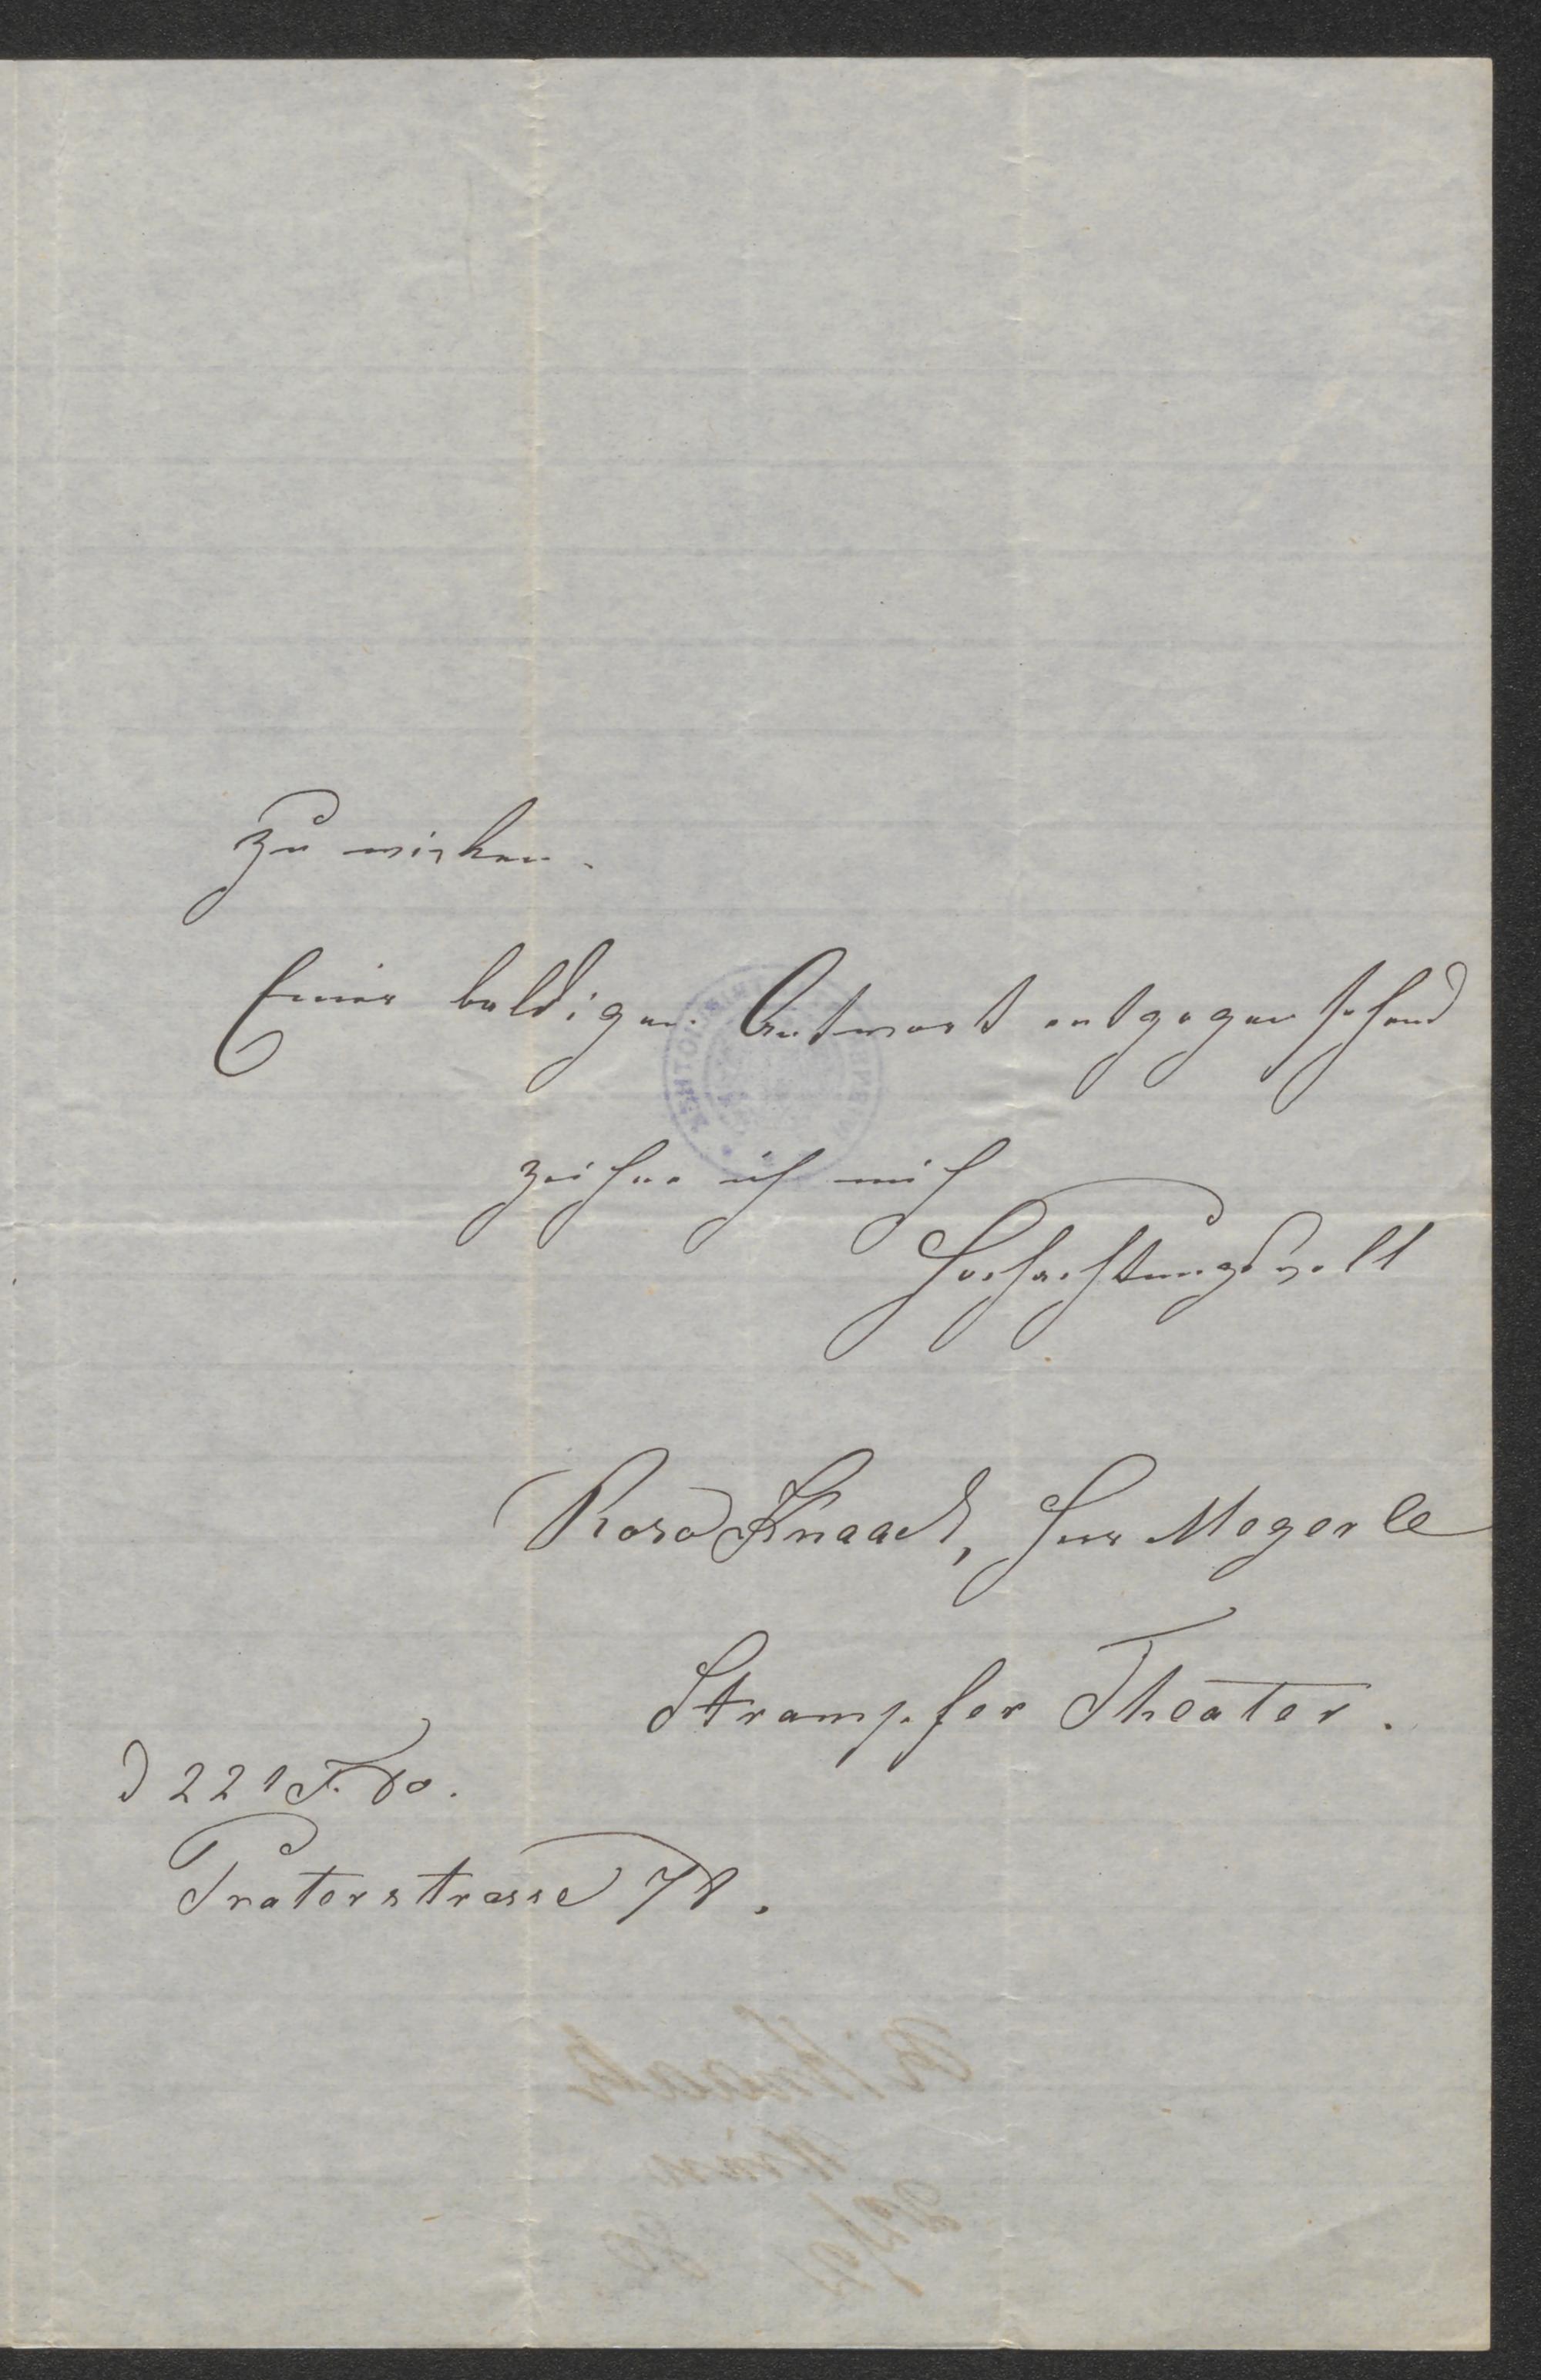 zu wirken.
Einer baldigen Antwort entgegensehend
zeichne ich mich
Hochachtungsvoll
Rosa Knaack, Megerle
Strampfer Theater.
Praterstrasse 78.